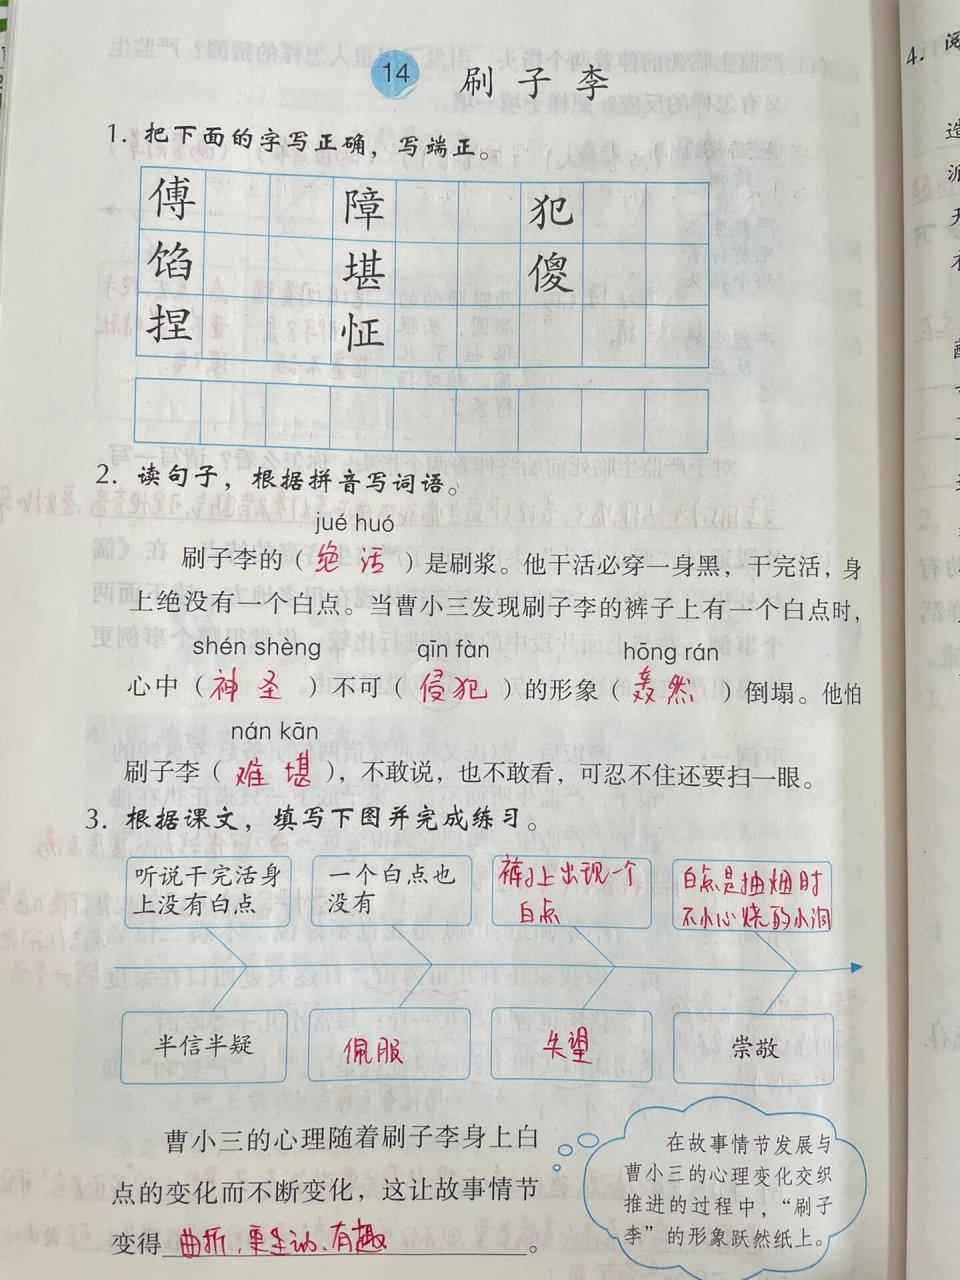 14 刷子李
1. 把下面的字写正确，写端正。
傅 障 犯
馅 堪 傻
捏 怔
2. 读句子，根据拼音写词语。
jué huó
刷子李的（绝活）是刷浆。他干活必穿一身黑，干完活，身
上绝没有一个白点。当曹小三发现刷子李的裤子上有一个白点时，
shén shèng qīn fàn hōng rán
心中（神圣）不可（侵犯）的形象（轰然）倒塌。他怕
nán kān
刷子李（难堪），不敢说，也不敢看，可忍不住还要扫一眼。
3. 根据课文，填写下图并完成练习。
听说干完活身
上没有白点
一个白点也
没有
裤子上出现一个
白点
白点是抽烟时
不小心烧的小洞
半信半疑
佩服
失望
崇敬
曹小三的心理随着刷子李身上白
点的变化而不断变化，这让故事情节
变得曲折、更生动、有趣。
在故事情节发展与
曹小三的心理变化交织
推进的过程中，“刷子
李”的形象跃然纸上。
4.